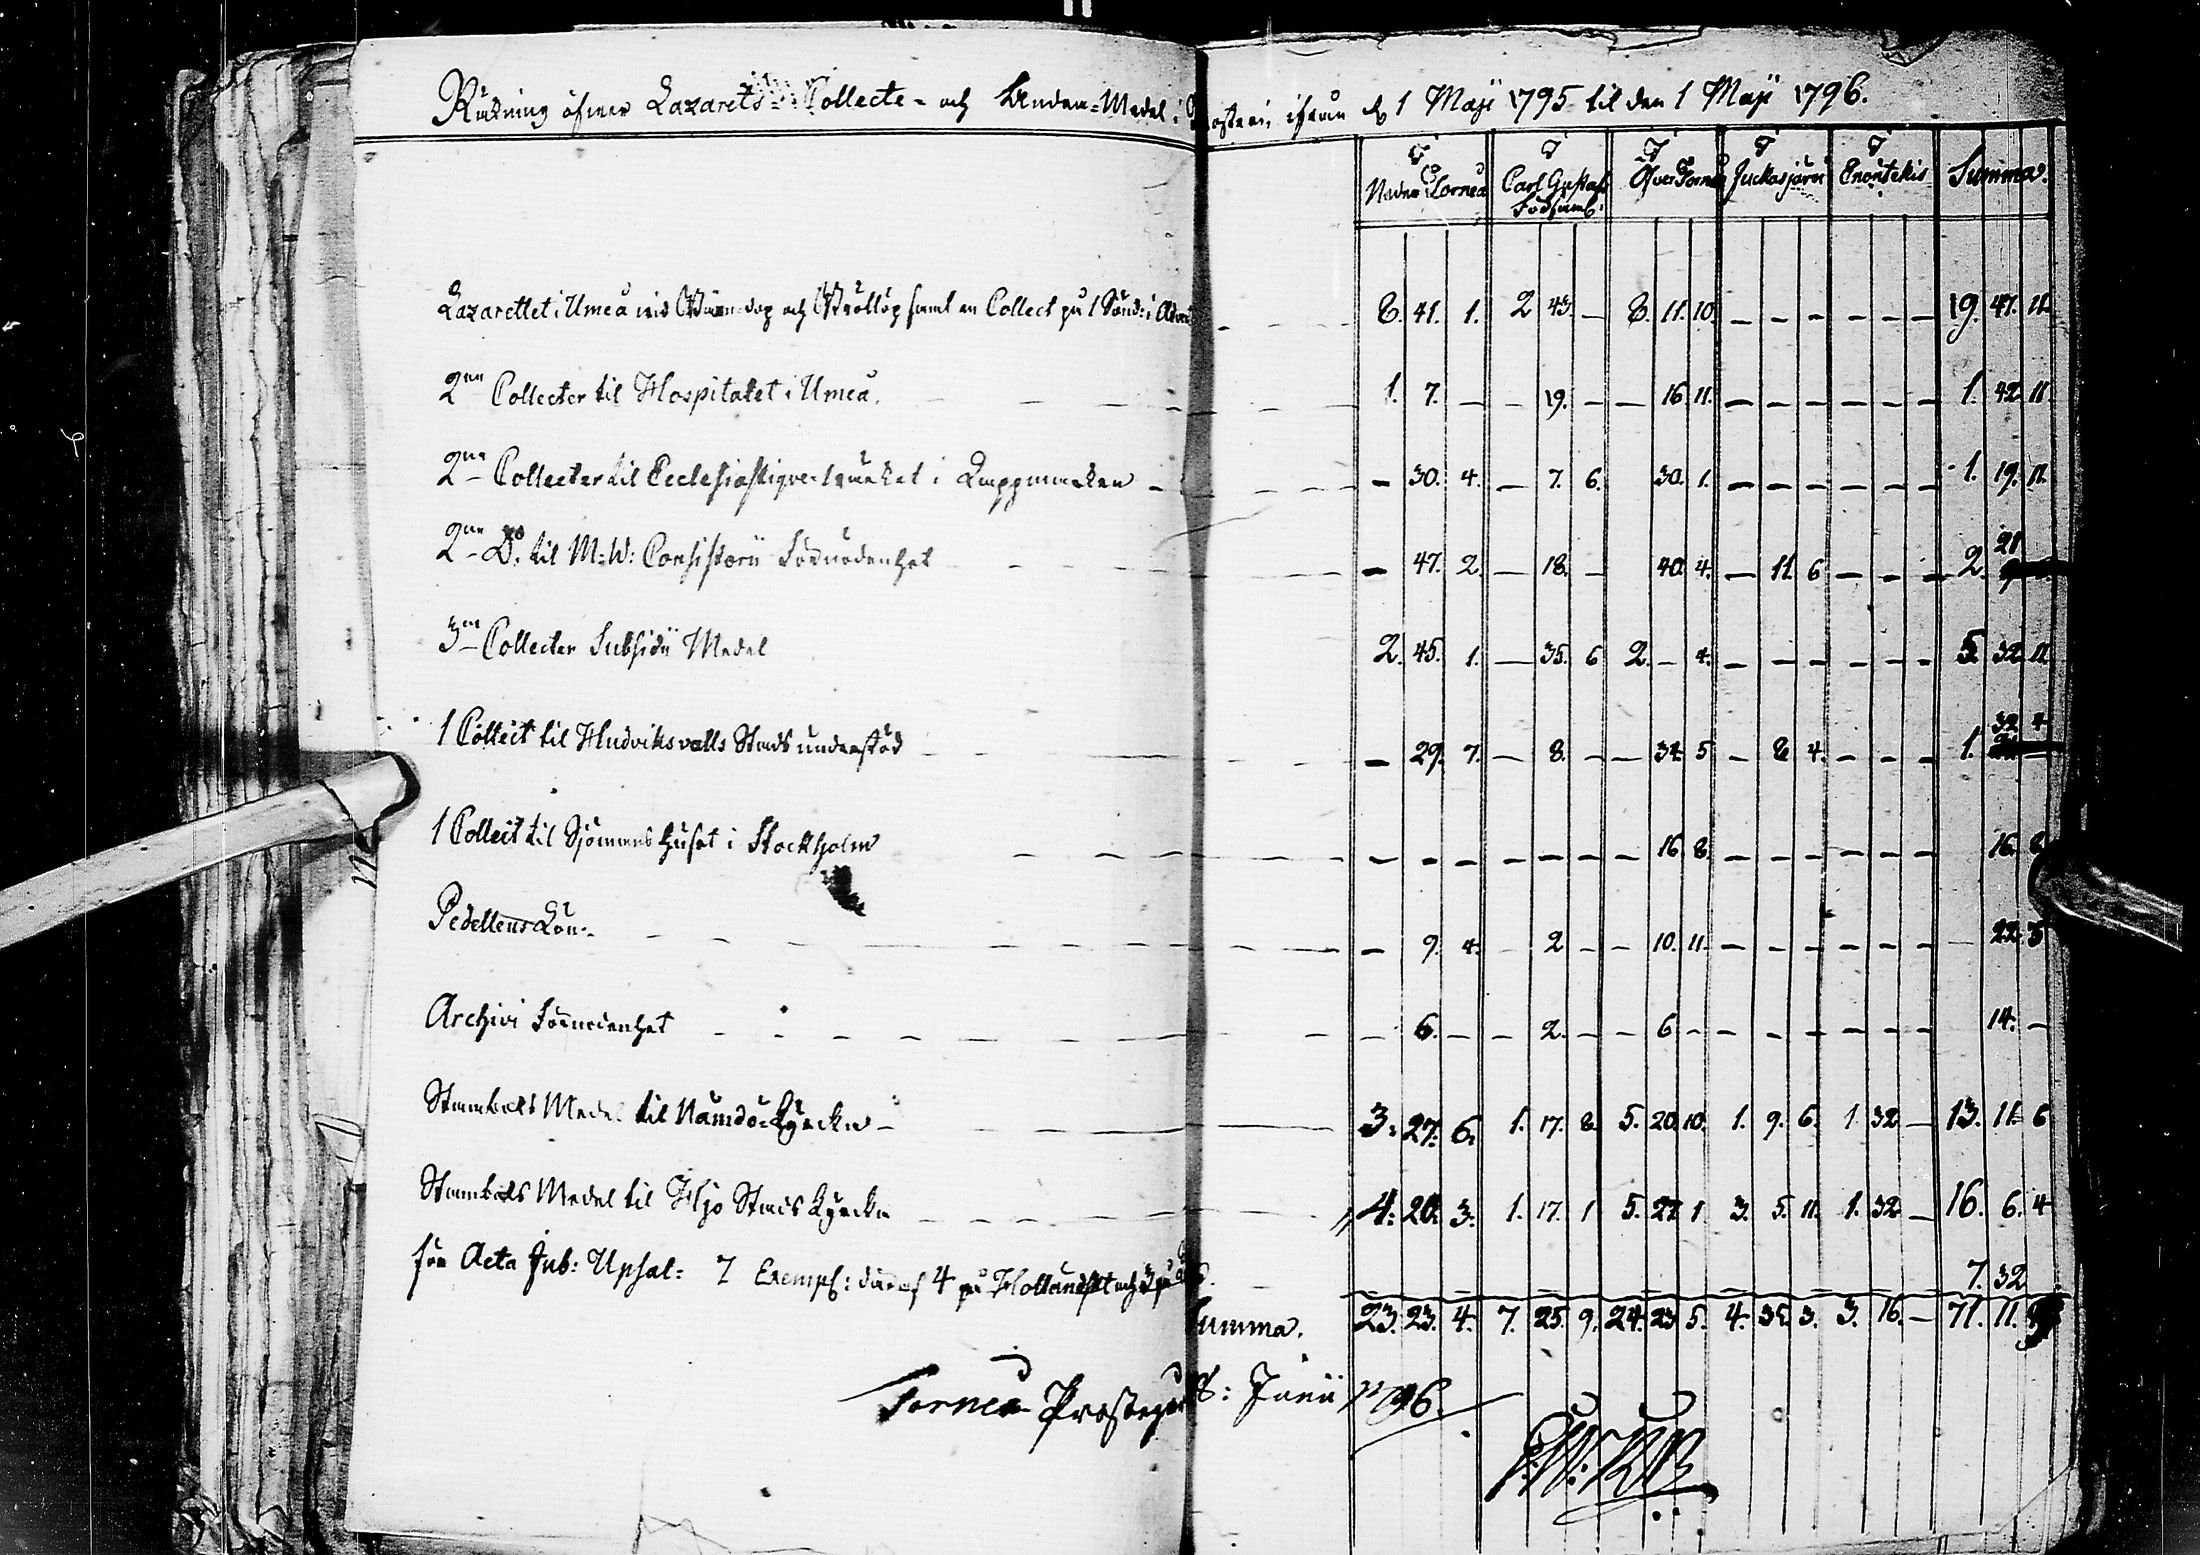 Räkning öfwer Lazarets- Collecte- och andra-Medel i Prosteri, ifrån d. 1 Maji 1795 til den 1 Maji 1796.
Neder Torneå Carl Gustafs Församl: Öfver Torneå Juckasjärvi Enontekis Summa.
Lazarettet i Umeå wid Barndop och Bröllop samt en Collect på 1 Sönd: i Advent 8. 41. 1. 2 43. — 8. 11. 10. — — — — — — 19. 47. 11.
2ne Collecter til Hospitalet i Umeå. 1. 7. — — 19. — — 16 11. — — — — — — 1. 42. 11.
2ne Collecter til Ecclesiastique-werket i Lappmarken — 30. 4. — 7. 6. 30. 1. — — — — — — 1. 19. 11.
2ne Do til M: W: Consistorii Förnödenhet — 47. 2. — 18. — 40. 4. — 11. 6 — — — 2. 21
3ne Collecter Subsidii Medel 2. 45. 1. — 35. 6 2. — 4. — — — — — — 5. 32. 11
1 Collect til Hudviksvalls Stads understöd — 29. 7. — 8. — — 34. 5. — 8 4. — — — 1. 32. 4.
1 Collect til Sjömans huset i Stockholm — — — — — — — 16. 8. — — — — — — 16. 8
Pedellens Lön — 9. 4. — 2 — — 10. 11. — — — — — — — 22. 3
Archivi Förnödenhet — 6. — — 2. — — 6 — — — — — — — 14. —
Stambok Medel til Nämdö Kyrcka — 3. 27. 6. 1. 17. 8. 5. 20. 10. 1. 9. 6. 1. 32. — 13. 11. 6
Stamboks Medel til Hjo Stads Kyrcka 4. 20. 3. 1. 17. 1 5. 27. 1. 3. 5. 11. 1. 32. — 16. 6. 4
för Acta Jub: Upsal: 7 Exempl: däraf 4 på Holländskt och 3 på 7. 32
Summa. 23. 23. 4. 7. 25. 9. 24. 23 5. 4. 35. 3. 3. 16. — 71. 11.
Torneå Prostegård : Junii 1796.